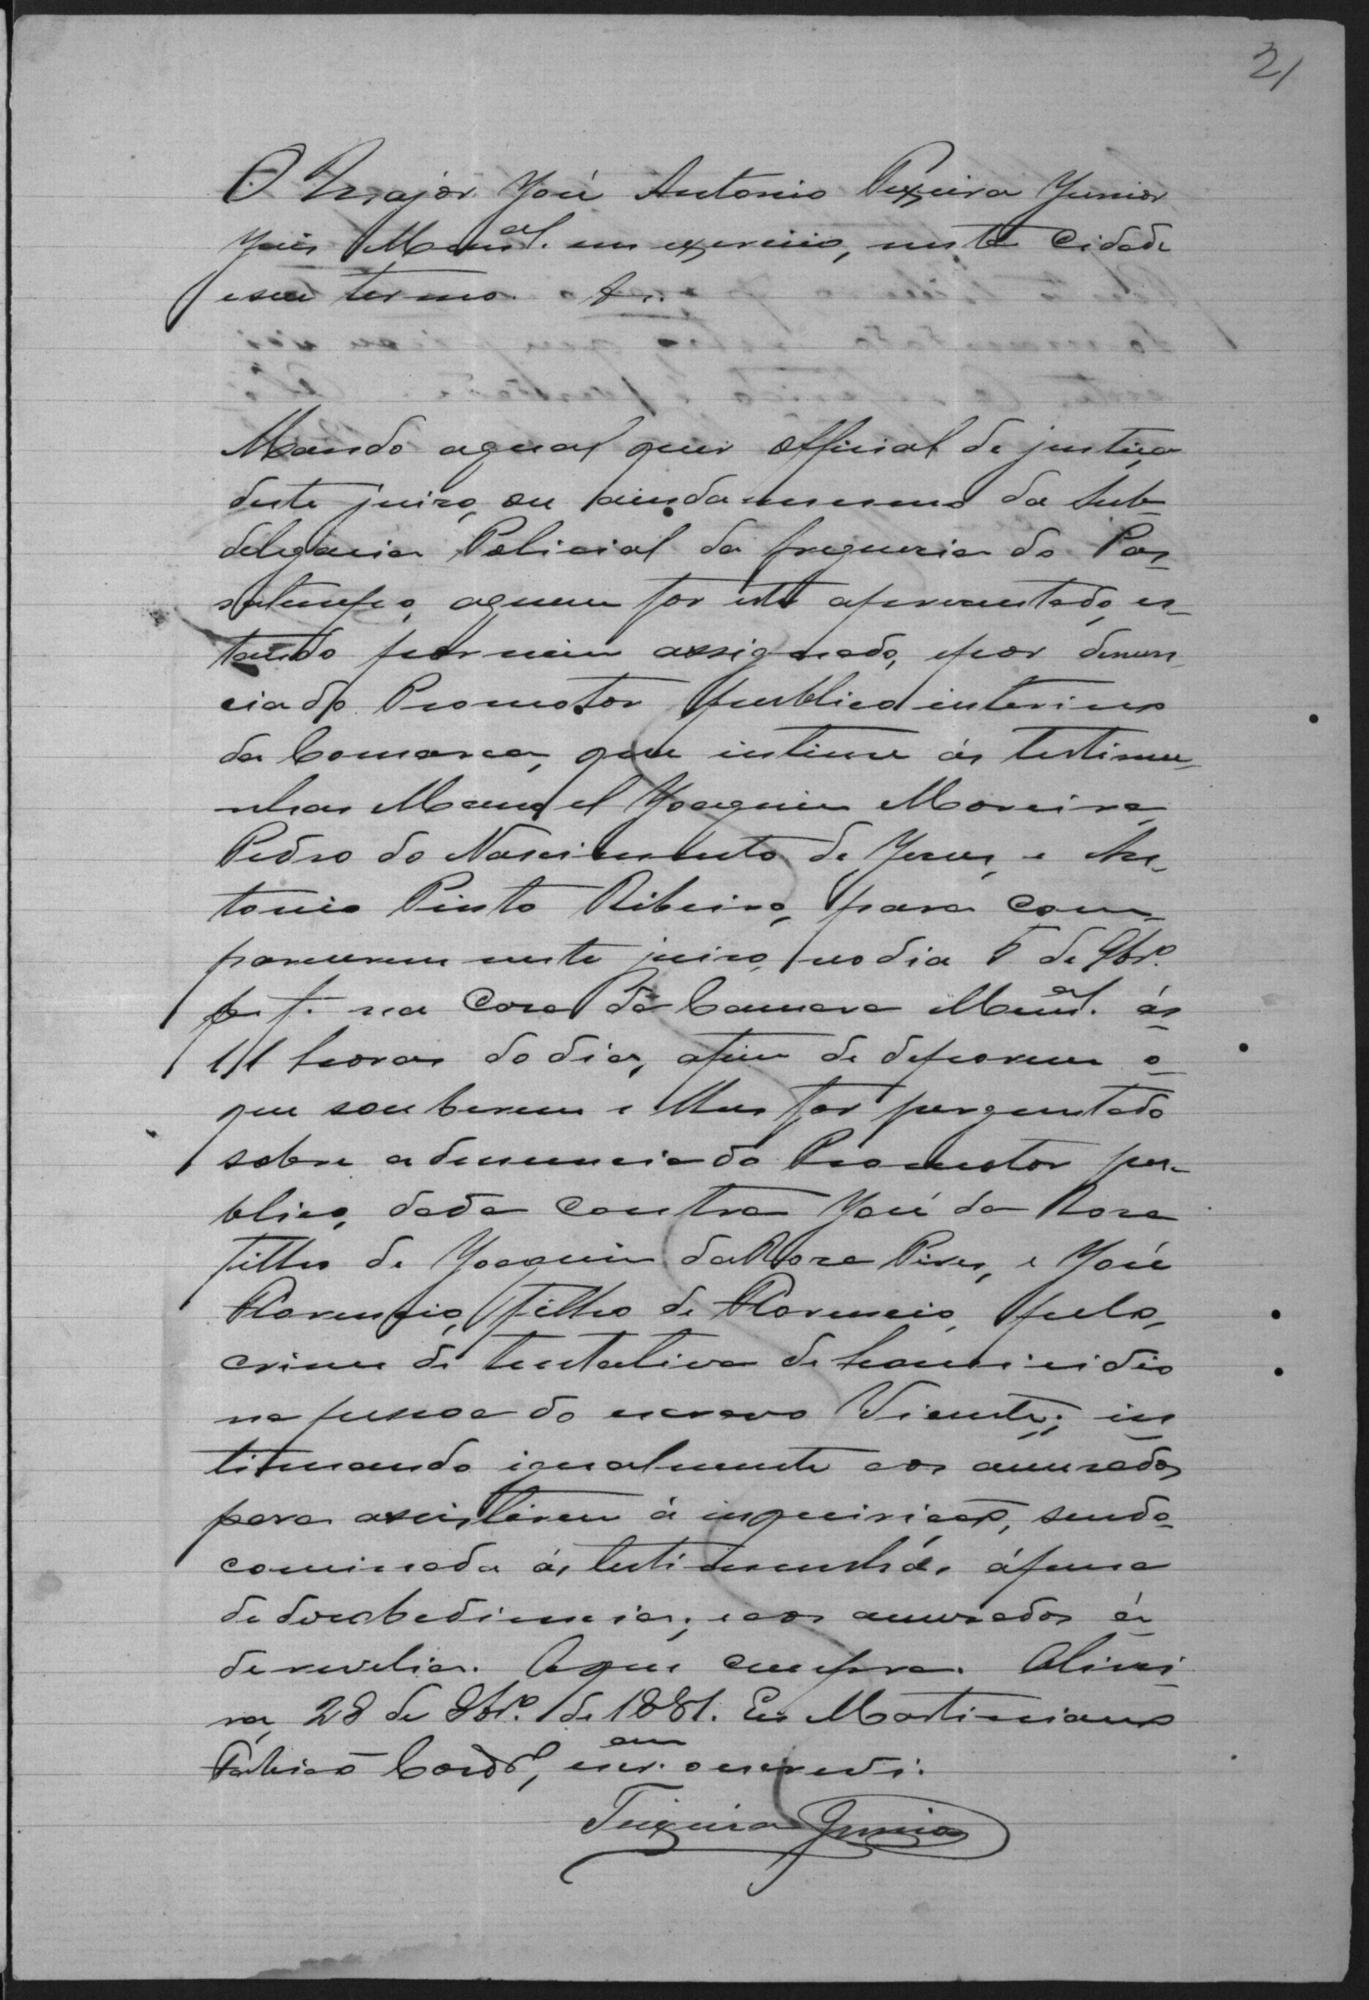 21
O Major José Antonio Teixeira Junior
Juis Munal. em exercicio, nesta Cidade
eseu termo. &.
Mando aqual quer Official de justiça
deste juizo, ou ainda mesmo da Sub-
delegacia Policial da freguesia do Pas-
satempo, aquem for este aprezentado, es-
tando por mim assignado, e por denun-
cia do Promotor publico interino
da Comarca, que intime ás testimu-
nhas Manoel Joaquim Moreira,
Pedro do Nascimento de Jesus, e An-
tonio Pinto Ribeiro, para com-
parecerem neste juizo, no dia 5 de 9brº.
p. f. na Casa da Camara Munal. ás
11 horas do dia, afim de deporem o
que souberem e lhes for perguntado
sobre a denuncia do Promotor pu-
blico, dada contra José da Rosa
filho de Joaquim da Rosa Pires, e José
Florencio, filho de Florencio, pelo
crime de tentativa de homicidio
na pessoa do escravo Vicente; in
timando igualmente aos accusados
para assistirem á inquirição, sendo
cominada ás testimunhas á pena
de desobediencia; e aos accusados á
de revelia. O que cumpra. Olivei-
ra, 28 de 8brº. de 1881. Eu Martiniano
Fabião Cordl., escram. o escrevi.
Teixeira Junior